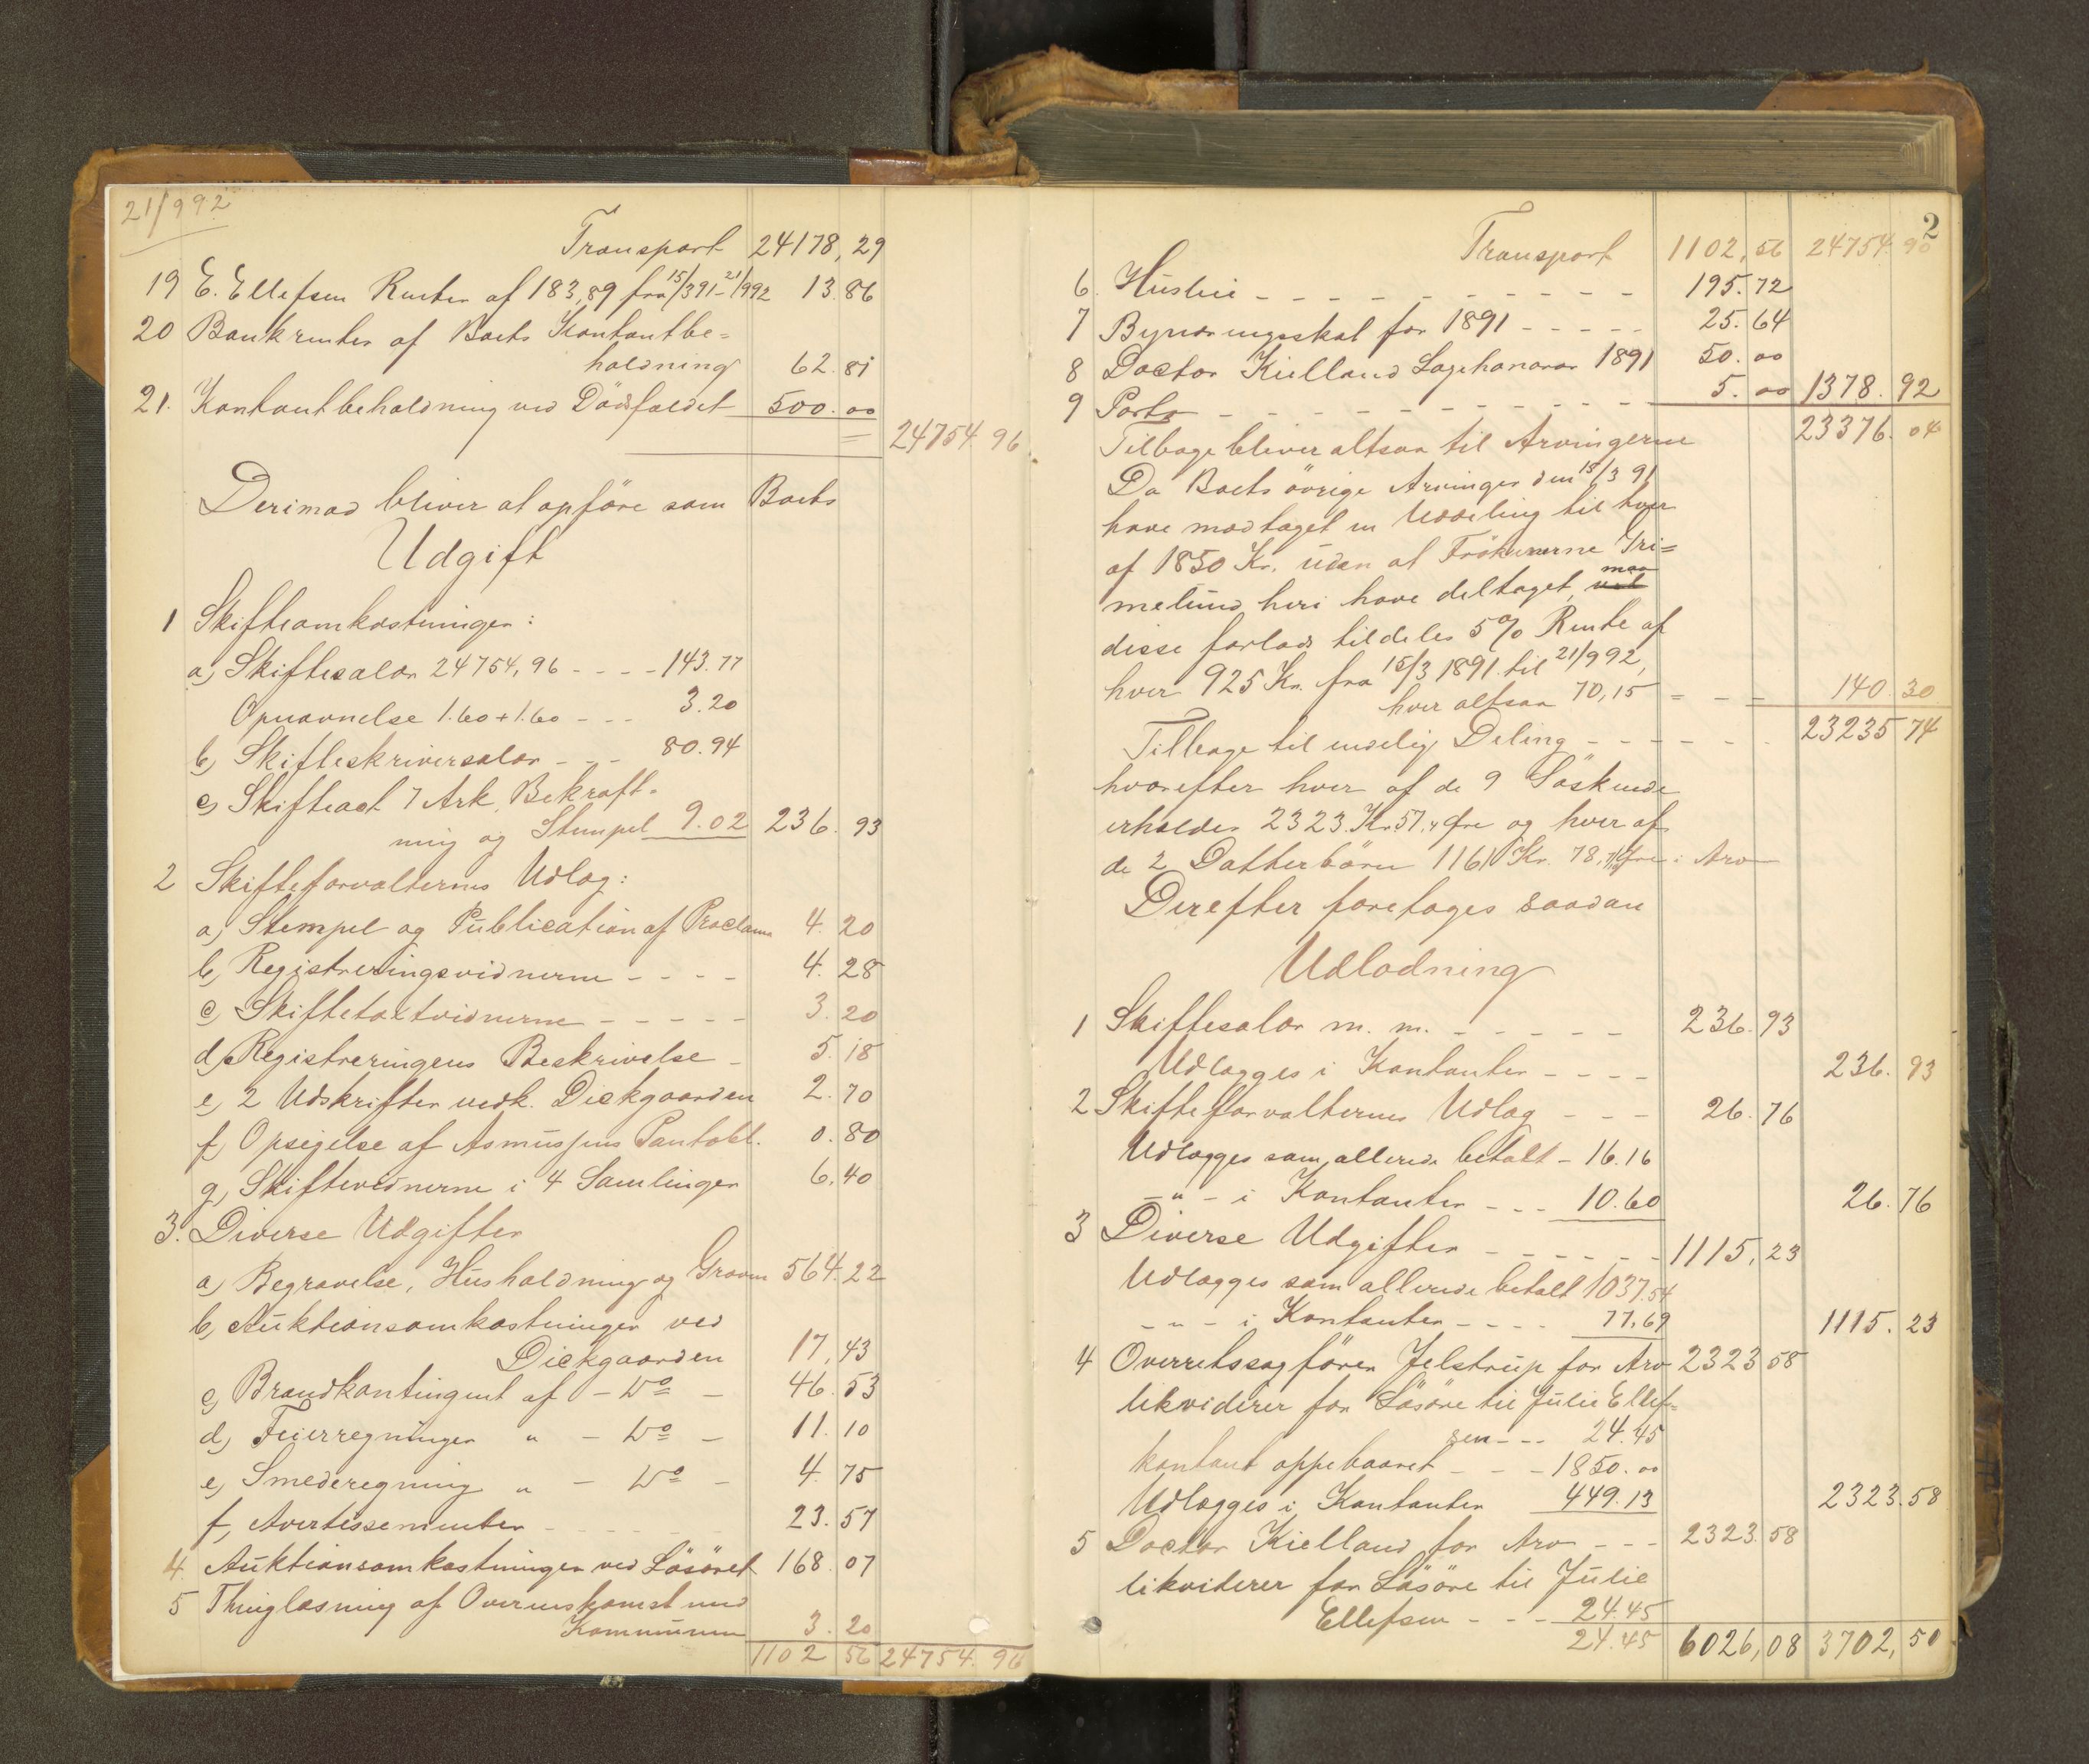 21/992
Transport 24178,29
19 E. Ellefsen Renter af 183,89 fra 15/391-21/992 13.86
20 Bankrenter af Boets Kontantbe=
holdning 62.81
21. Kontantbeholdning ved Dödsfaldet 500.00
= 24754.96
Derimod bliver at opföre som Boets
Udgift
1 Skifteomkostninger:
a, Skiftesalær 24754,96 - - - - 143.77
Opnævnelse 1.60 + 1.60 - - - 3.20
b, Skifteskriversalær - - - 80.94
c, Skifteact 7 Ark, Bekræft=
ning og Stempel 9.02 236.93
2 Skifteforvalterens Udlæg:
a, Stempel og Publication af Proclama 4.20
b, Registreringsvidnerne - - - - 4.28
c, Skiftetaxtvidnerne - - - - - 3.20
d, Registreringens Beskrivelse - 5.18
e, 2 Udskrifter vedk. Dickgaarden 2.70
f, Opsigelse af Asmussens Pantobl. 0.80
g, Skiftevidnerne i 4 Samlinger 6.40
3. Diverse Udgifter
a, Begravelse, Husholdning og Graven 564.22
b, Auktionsomkostninger ved
Dickgaarden 17,43
c, Brandkontingent af - Do - 46.53
d, Feierregninger " - Do - 11.10
e, Smederegning " - Do - 4.75
f, Avertissementer - - - - - 23.57
4. Auktionsomkostninger ved Lösöret 168.07
5 Thinglæsning af Overenskomst med
Kommunen 3.20
1102 56 24754.96
2
Transport 1102,56 24754.96
6. Husleie - - - - - - - - - - 195.72
7 Bynæringsskat for 1891 - - - - - 25.64
8 Doctor Kielland Lægehonorar 1891 50.00
9 Porto - - - - - - - - - - - 5.00 1378.92
Tilbage bliver altsaa til Arvingerne 23376.04
Da Boets övrige Arvinger den 15/3 91
have modtaget en Uddeling til hver
af 1850 Kr. uden at Frökenerne Gri=
melund heri have deltaget, vil maa
disse forlods tildeles 5% Rente af
hver 925 Kr. fra 15/3 1891 til 21/992,
hver altsaa 70,15 - - - 140.30
Tilbage til endelig Deling - - - - - - 23235 74
hvorefter hver af de 9 Söskende
erholder 2323.Kr.57,4 Øre og hver af
de 2 Datterbörn 1161 Kr. 78,7 Øre i Arv
Derefter foretages saadan
Udlodning
1 Skiftesalær m. m. - - - - - 236.93
Udlægges i Kontanter - - - - 236.93
2 Skifteforvalterens Udlæg - - - 26.76
Udlægges som allerede betalt - 16.16
- " - i Kontanter - - - 10.60 26.76
3 Diverse Udgifter - - - - - - 1115,23
Udlægges som allerede betalt 1037.54
- " - i Kontanter - - - - 77.69 1115.23
4 Overretssagförer Jelstrup for Arv 2323 58
likviderer for Lösöre til Julie Ellef=
sen - - - 24.45
kontant oppebaaret - - - 1850.00
Udlægges i Kontanter 449.13 2323.58
5 Doctor Kielland for Arv - - - 2323.58
likviderer for Lösöre til Julie
Ellefsen - - - 24.45
24.45 6026,08 3702,50